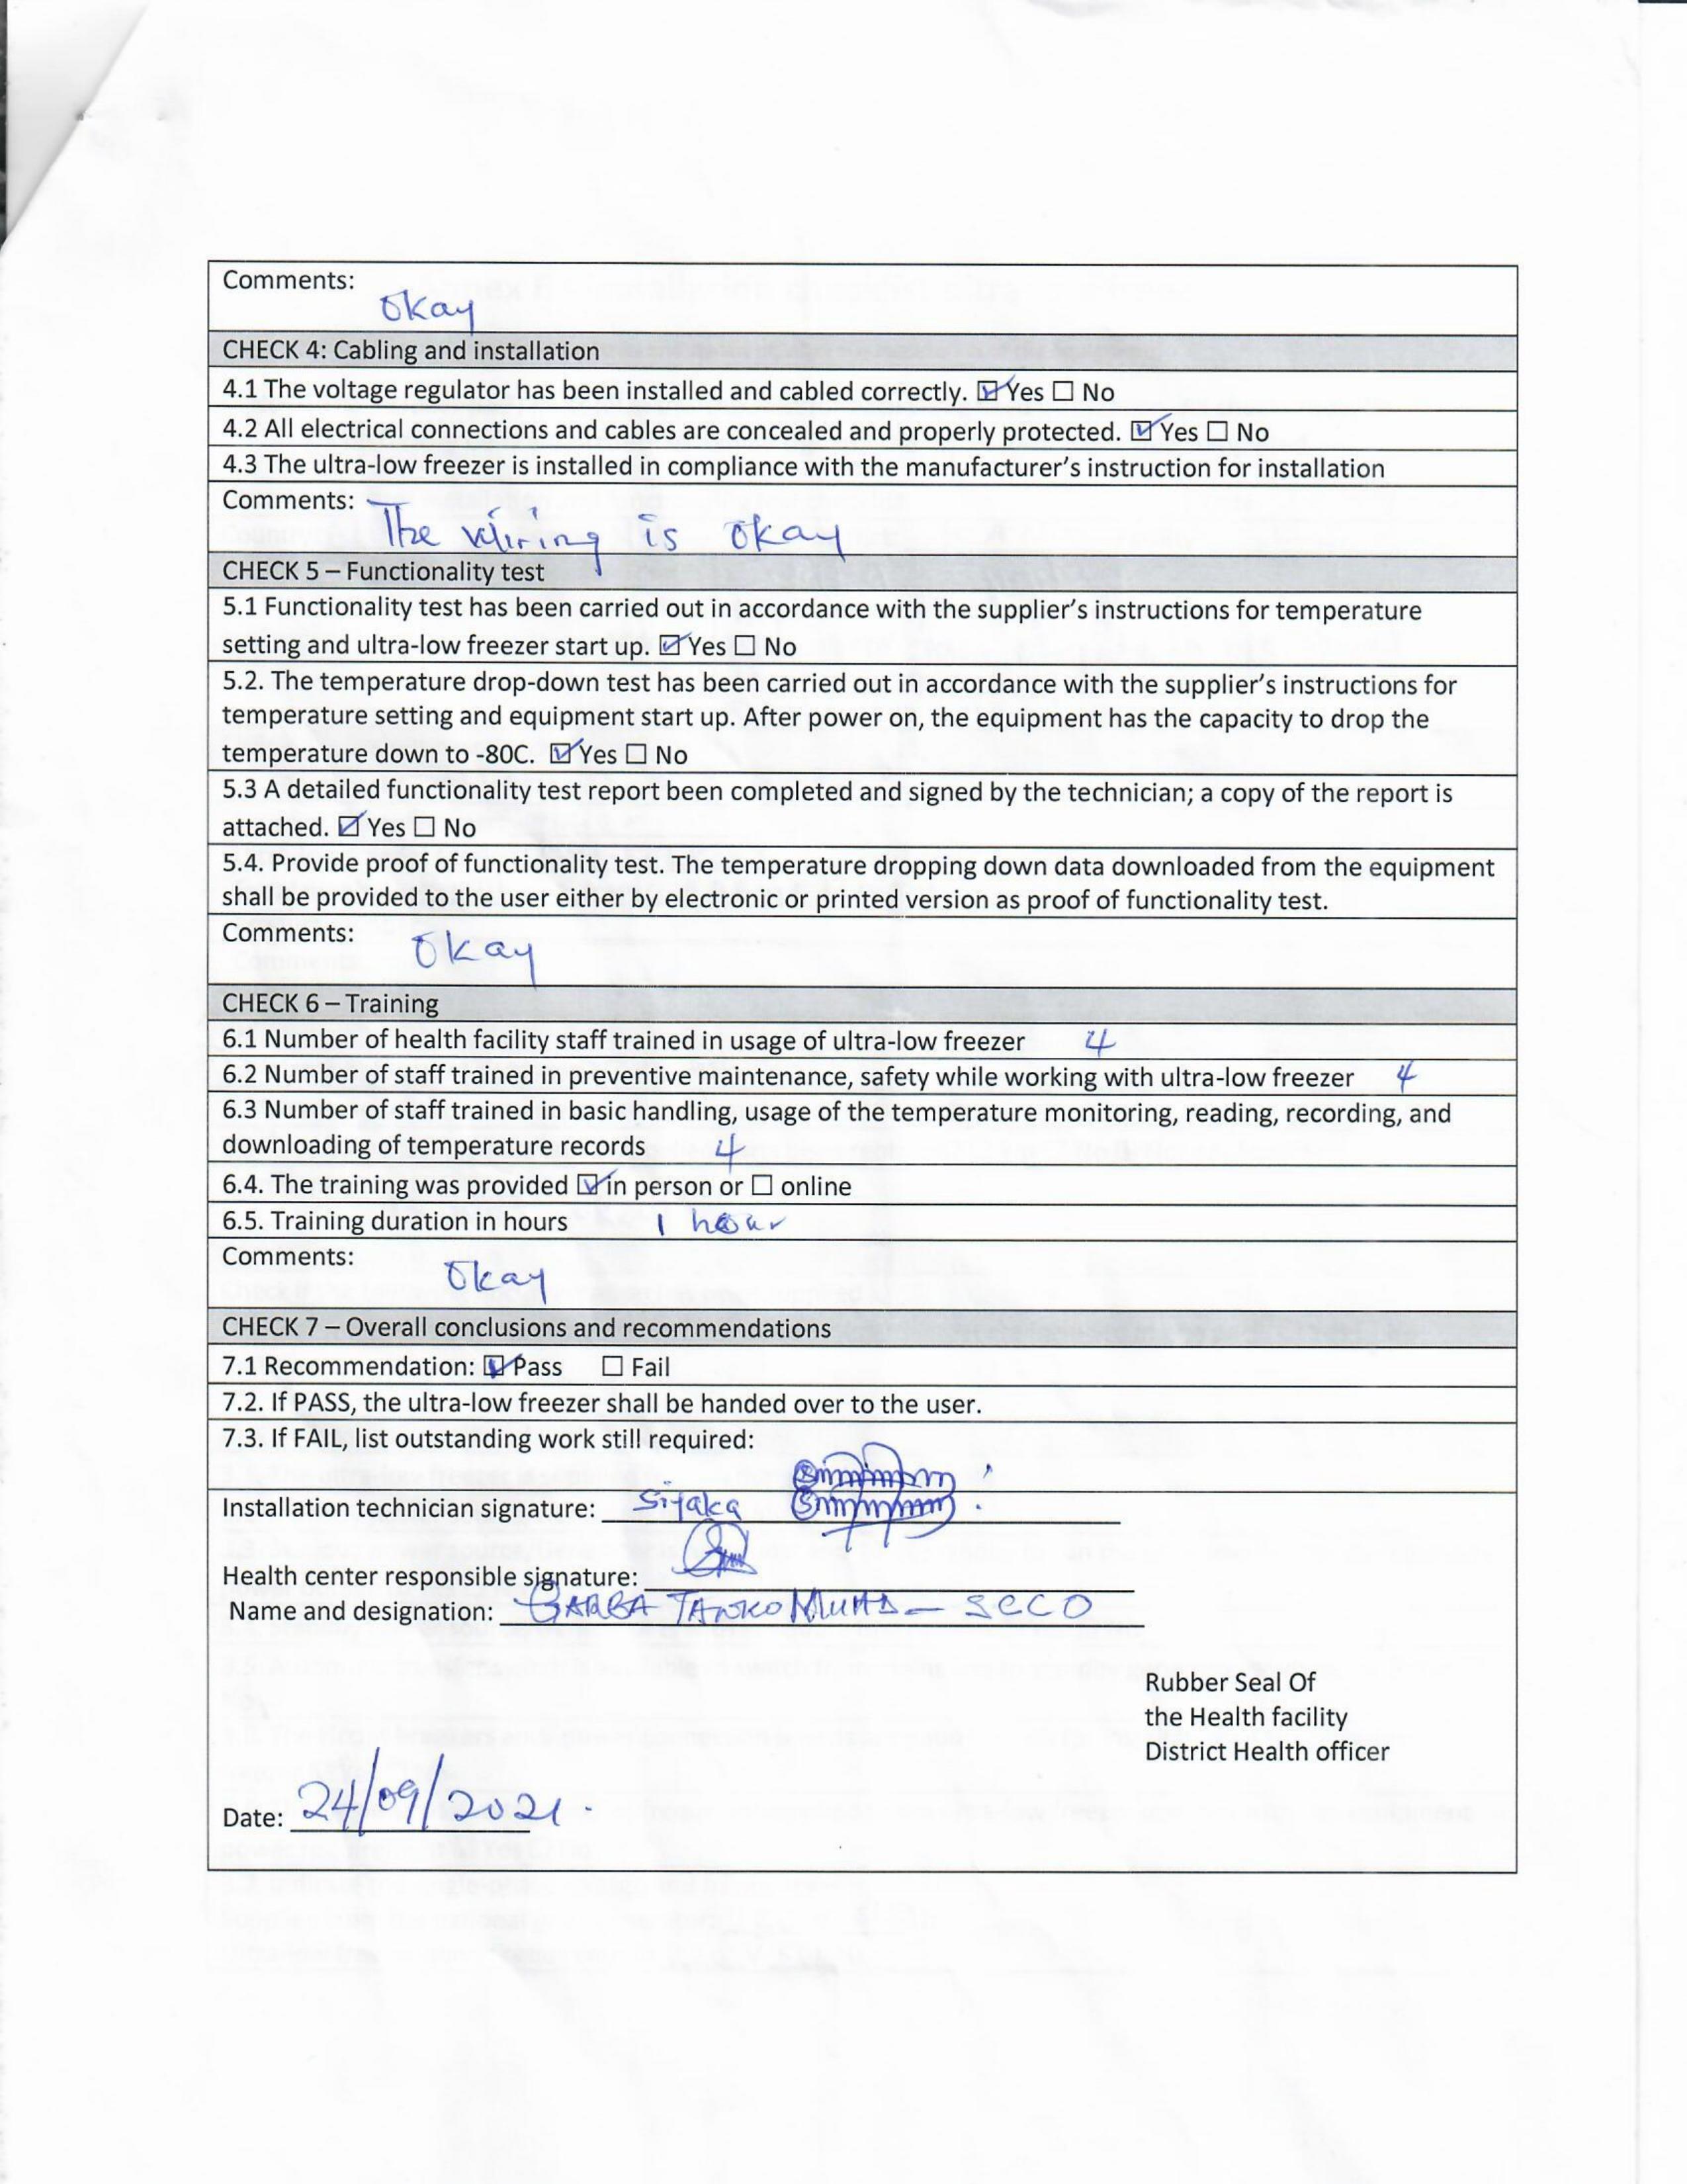 Comments:
Okay
CHECK 4: Cabling and installation
4.1 The voltage regulator has been installed and cabled correctly. ☑ Yes ☐ No
4.2 All electrical connections and cables are concealed and properly protected. ☑ Yes ☐ No
4.3 The ultra-low freezer is installed in compliance with the manufacturer's instruction for installation
Comments:
The wiring is okay
CHECK 5 – Functionality test
5.1 Functionality test has been carried out in accordance with the supplier's instructions for temperature
setting and ultra-low freezer start up. ☑ Yes ☐ No
5.2. The temperature drop-down test has been carried out in accordance with the supplier's instructions for
temperature setting and equipment start up. After power on, the equipment has the capacity to drop the
temperature down to -80C. ☑ Yes ☐ No
5.3 A detailed functionality test report been completed and signed by the technician; a copy of the report is
attached. ☑ Yes ☐ No
5.4. Provide proof of functionality test. The temperature dropping down data downloaded from the equipment
shall be provided to the user either by electronic or printed version as proof of functionality test.
Comments:
Okay
CHECK 6 – Training
6.1 Number of health facility staff trained in usage of ultra-low freezer 4
6.2 Number of staff trained in preventive maintenance, safety while working with ultra-low freezer 4
6.3 Number of staff trained in basic handling, usage of the temperature monitoring, reading, recording, and
downloading of temperature records 4
6.4. The training was provided ☑ in person or ☐ online
6.5. Training duration in hours 1 hour
Comments:
Okay
CHECK 7 – Overall conclusions and recommendations
7.1 Recommendation: ☑ Pass ☐ Fail
7.2. If PASS, the ultra-low freezer shall be handed over to the user.
7.3. If FAIL, list outstanding work still required:
Installation technician signature: Siyaka
Health center responsible signature:
Name and designation: GARBA TANKO MUHD – SCCO
Rubber Seal Of
the Health facility
District Health officer
Date: 24/09/2021.